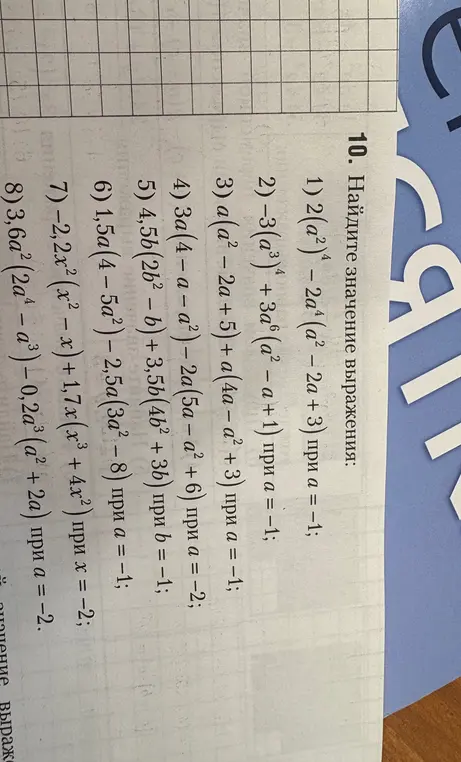 10. Найдите значение выражения:
1) 2(a²)⁴ − 2a⁴(a² − 2a + 3) при a = −1;
2) −3(a³)⁴ + 3a⁶(a² − a + 1) при a = −1;
3) a(a² − 2a + 5) + a(4a − a² + 3) при a = −1;
4) 3a(4 − a − a²) − 2a(5a − a² + 6) при a = −2;
5) 4,5b(2b² − b) + 3,5b(4b² + 3b) при b = −1;
6) 1,5a(4 − 5a²) − 2,5a(3a² − 8) при a = −1;
7) −2,2x²(x² − x) + 1,7x(x³ + 4x²) при x = −2;
8) 3,6a²(2a⁴ − a³) − 0,2a³(a² + 2a) при a = −2.
значение